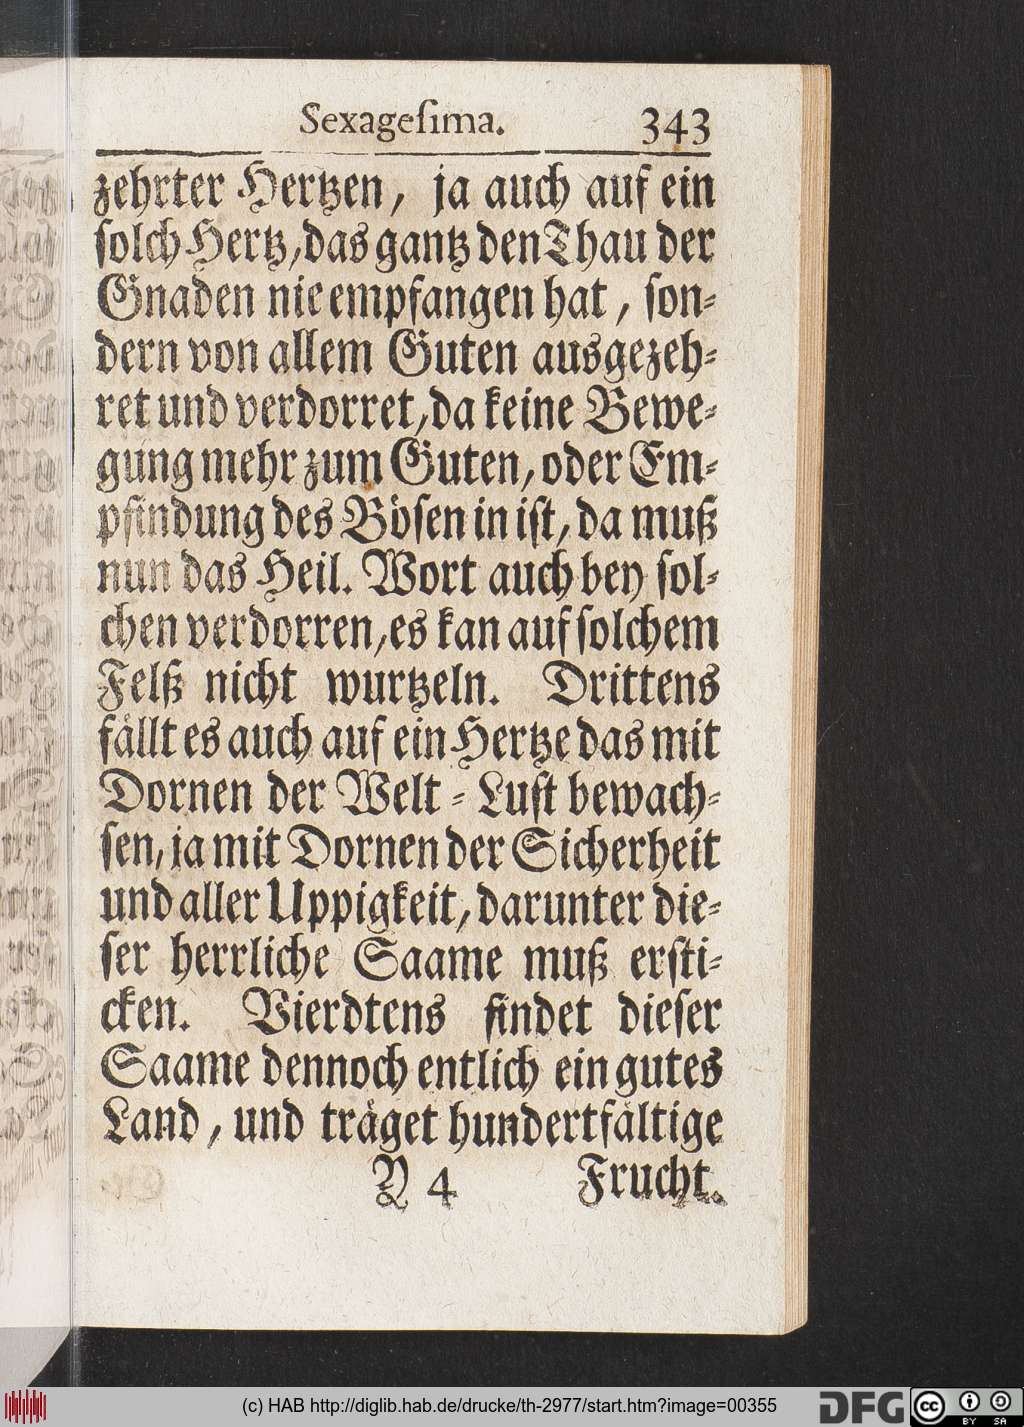 Sexageſima. 343
zehrter Hertzen, ja auch auf ein
ſolch Hertz, das gantz den Thau der
Gnaden nie empfangen hat, ſon-
dern von allem Guten ausgezeh-
ret und verdorret, da keine Bewe-
gung mehr zum Guten, oder Em-
pfindung des Böſen in iſt, da muß
nun das Heil. Wort auch bey ſol-
chen verdorren, es kan auf ſolchem
Felß nicht wurtzeln. Drittens
fällt es auch auf ein Hertze das mit
Dornen der Welt-Luſt bewach-
ſen, ja mit Dornen der Sicherheit
und aller Uppigkeit, darunter die-
ſer herrliche Saame muß erſti-
cken. Vierdtens findet dieſer
Saame dennoch entlich ein gutes
Land, und träget hundertfältige
Y 4 Frucht.
(c) HAB http://diglib.hab.de/drucke/th-2977/start.htm?image=00355
DFG cc BY SA